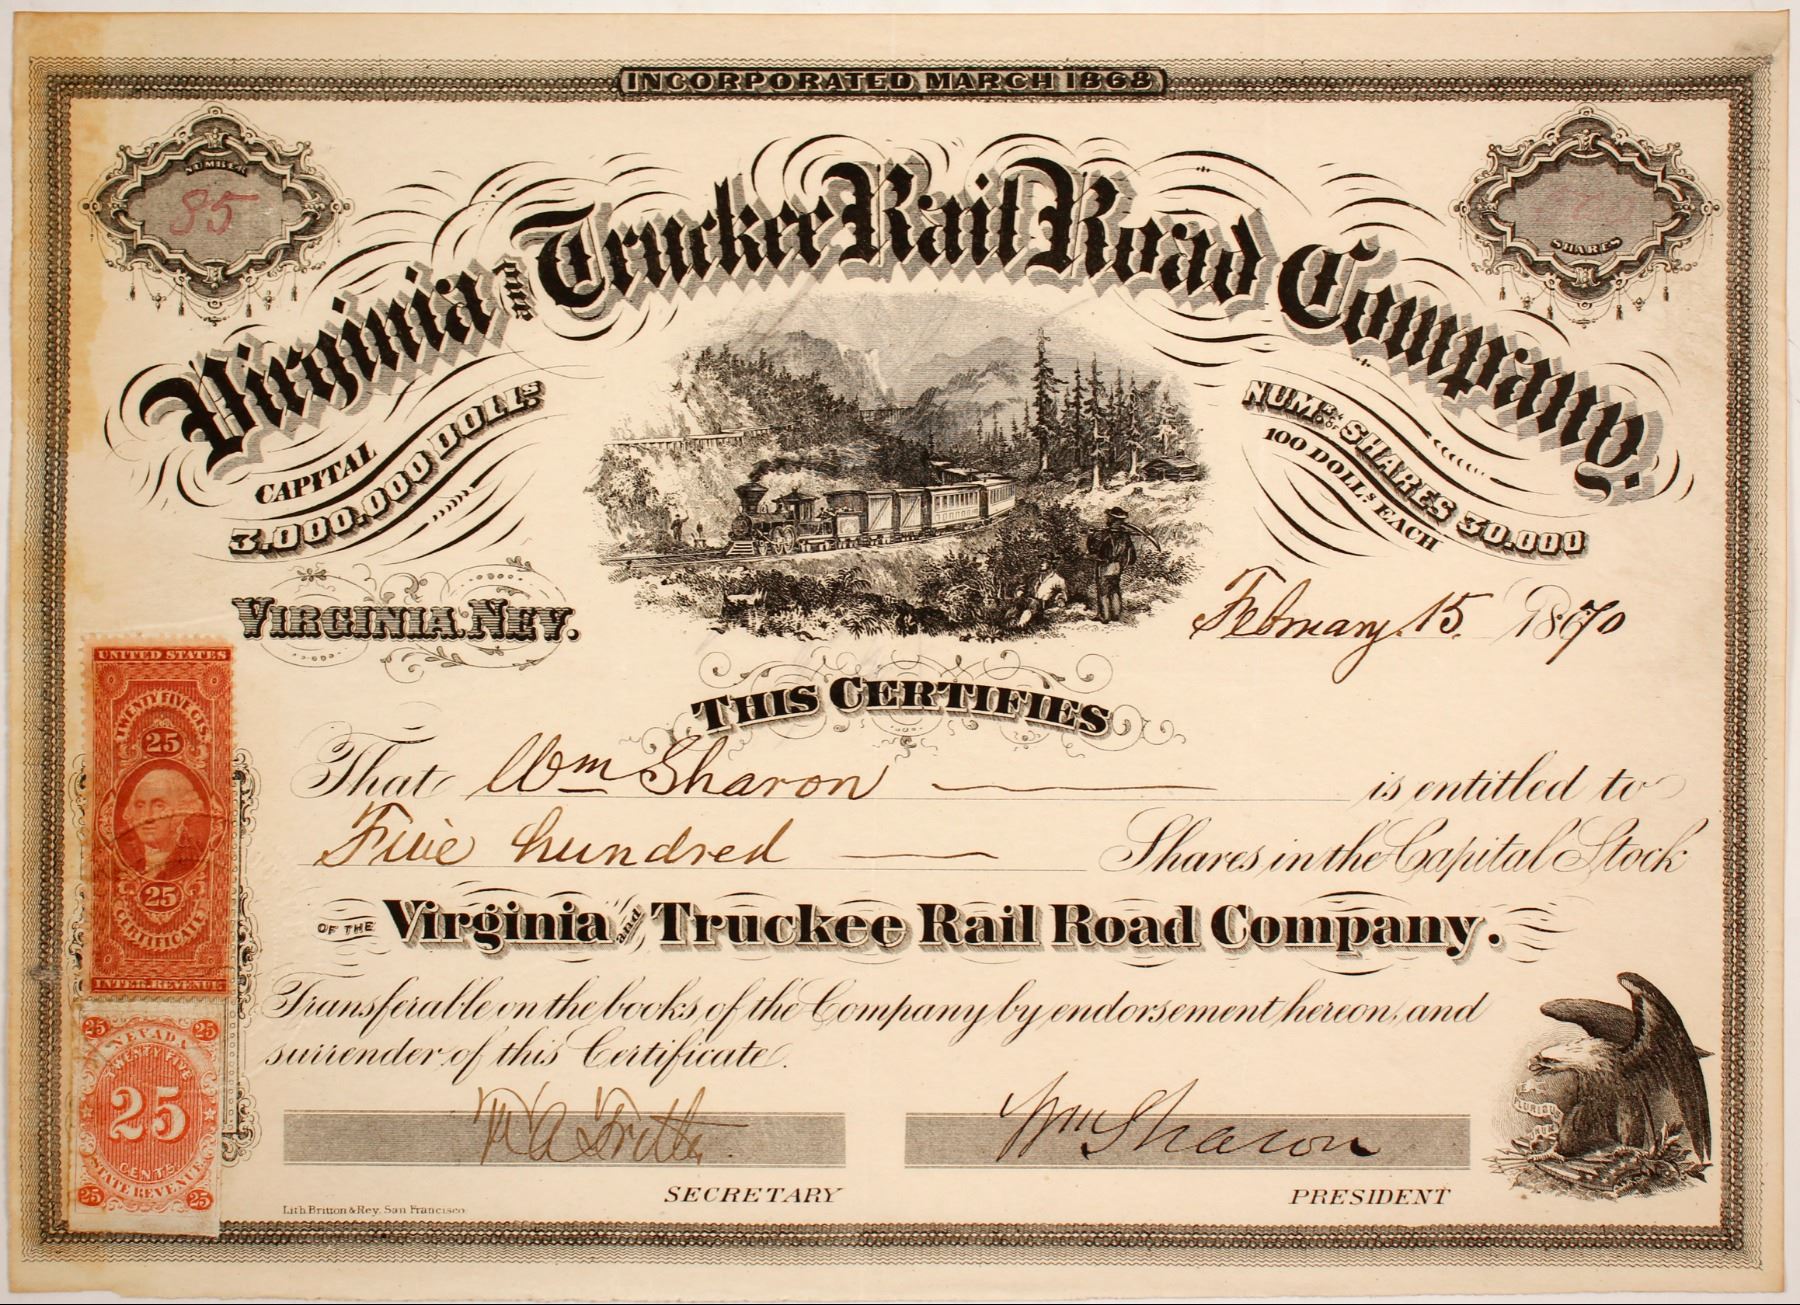 INCORPORATED MARCH 1868
NUMBER
85
SHARES
Virginia and Truckee Rail Road Company.
CAPITAL
3.000.000 DOLLS
NUMR OF SHARES 30.000
100 DOLLS EACH
VIRGINIA, NEV.
February 15. 1870
THIS CERTIFIES
That Wm Sharon is entitled to
Five hundred Shares in the Capital Stock
OF THE Virginia and Truckee Rail Road Company.
Transferable on the books of the Company by endorsement hereon, and
surrender of this Certificate.
Wm Sharon
SECRETARY
PRESIDENT
Lith. Britton & Rey, San Francisco
UNITED STATES
TWENTY FIVE CTS.
25
25
CERTIFICATE
INTER. REVENUE
25 25
NEVADA
TWENTY FIVE
25
CENTS
STATE REVENUE
25 25
E
PLURIBUS
UNUM